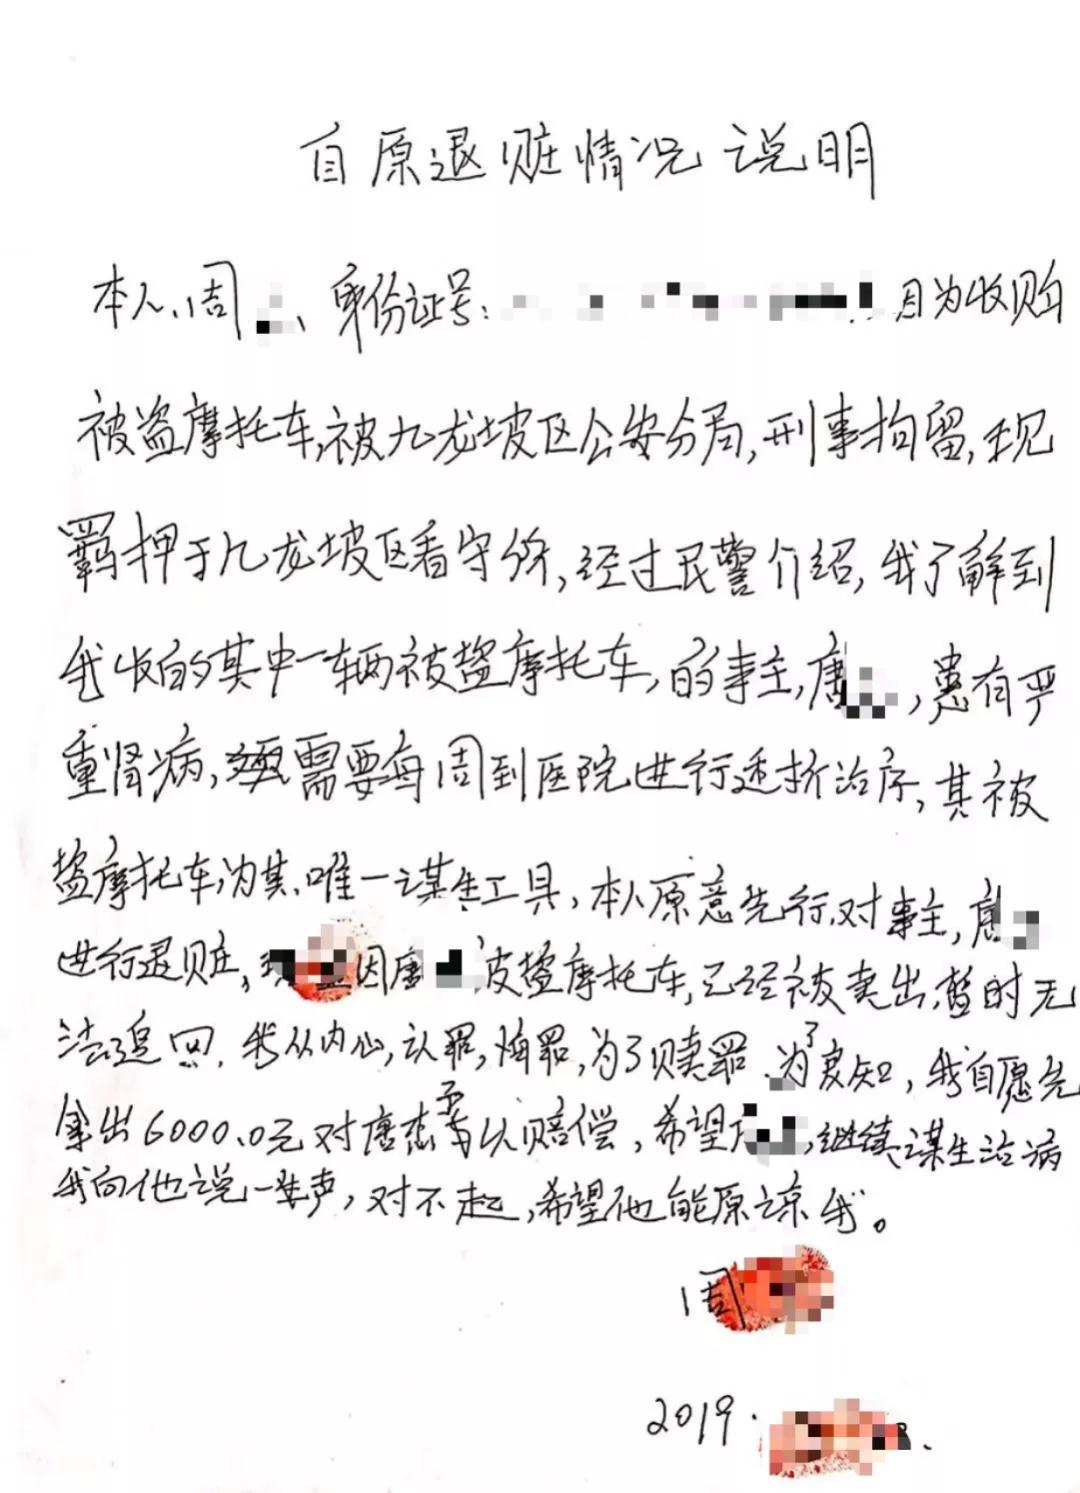 自原退赃情况说明
本人、周、身份证号:因为收购
被盗摩托车,被九龙坡区公安分局,刑事拘留,现
羁押于九龙坡区看守所,经过民警介绍,我了解到
我收的其中一辆被盗摩托车,的事主,唐,患有严
重肾病,需要每周到医院进行透折治疗,其被
盗摩托车,为其唯一谋生工具,本人原意先行对事主,唐
进行退赃,因唐被盗摩托车,已经被卖出,暂时无
法追回,我从内心,认罪,悔罪,为了赎罪、为了良知,我自愿先
拿出6000.0元对唐杰予以赔偿,希望,继续谋生治病
我向他说一声,对不起,希望他能原谅我。
周
2019.